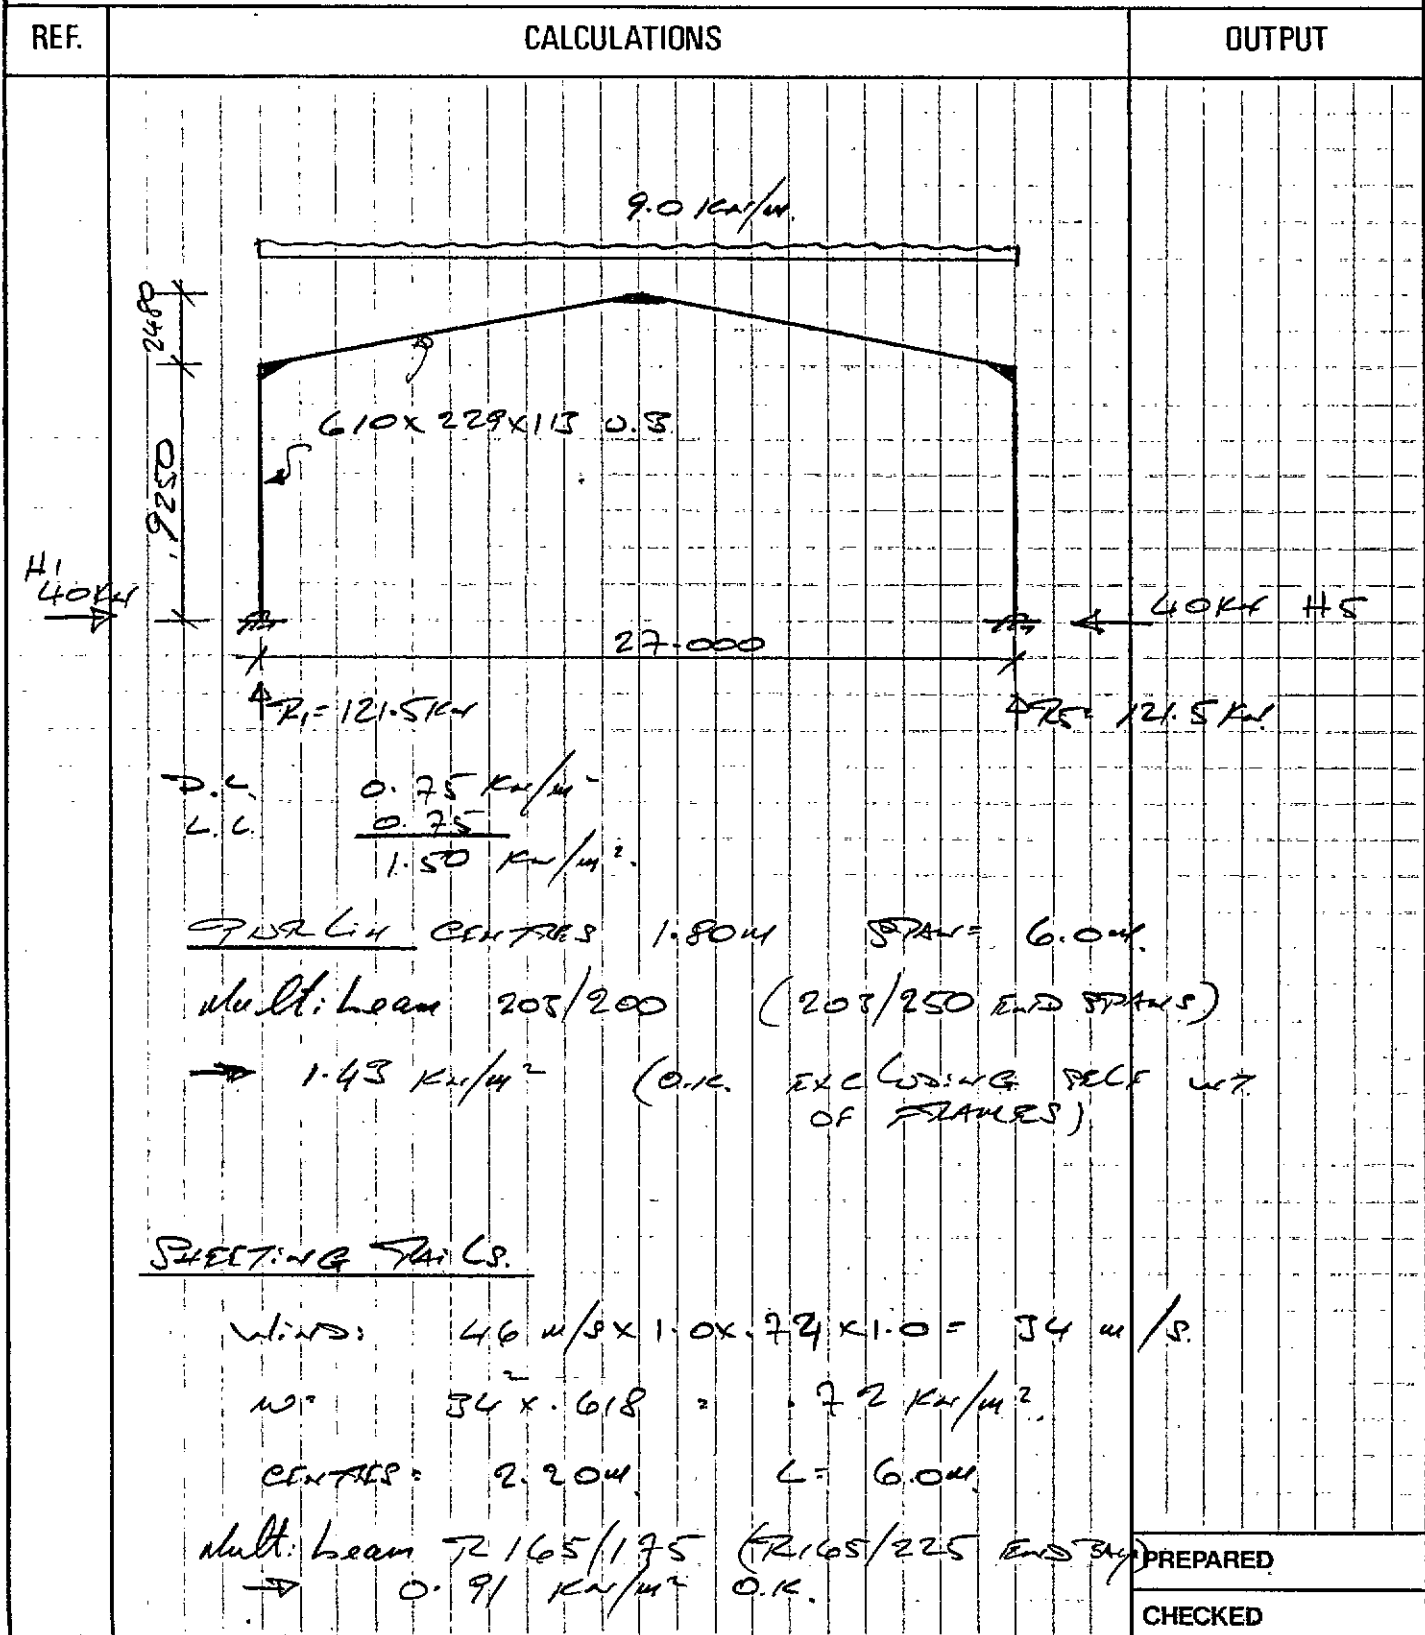 REF. CALCULATIONS OUTPUT
9.0 KN/m.
2480
610 x 229 x 113 U.B
9250
H1
40KN
40KN H5
27.000
R1= 121.5KN
R5= 121.5KN
D.L. 0.75 KN/m²
L.L. 0.75
1.50 KN/m².
PURLIN CENTRES 1.80m SPAN= 6.0m.
Multibeam 203/200 (203/250 END SPANS)
→ 1.43 KN/m² (O.K. EXCLUDING SELF WT.
OF FRAMES)
SHEETING RAILS.
WIND: 46 m/s x 1.0 x .74 x 1.0 = 34 m/s.
w= 34² x .618 = .72 KN/m².
CENTRES= 2.20m L= 6.0m
Multibeam R165/175 (R165/225 END BAY)
→ 0.91 KN/m² O.K.
PREPARED
CHECKED